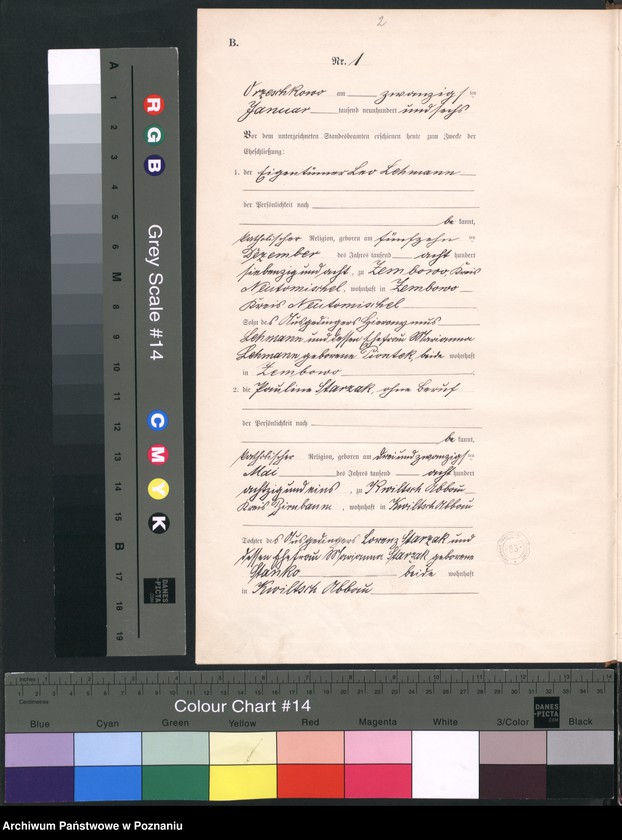 2
B.
Nr. 1
Orzeschkowo am zwanzigsten
Januar tausend neunhundert und sechs
Vor dem unterzeichneten Standesbeamten erschienen heute zum Zwecke der
Eheschließung:
1. der Eigentümer Leo Lehmann
der Persönlichkeit nach
be kannt,
katholischer Religion, geboren am fünfzehnten
Dezember des Jahres tausend acht hundert
siebenzig und acht, zu Zembowo, Kreis
Neutomischel, wohnhaft in Zembowo
Kreis Neutomischel
Sohn des Ausgedingers Hieronymus
Lehmann und dessen Ehefrau Marianna
Lehmann geborene Piontek, beide wohnhaft
in Zembowo
2. die Pauline Starzak, ohne Beruf
der Persönlichkeit nach
be kannt,
katholischer Religion, geboren am dreiundzwanzigsten
Mai des Jahres tausend acht hundert
achtzig und eins, zu Kwiltsch Abbau
Kreis Birnbaum, wohnhaft in Kwiltsch Abbau
Tochter des Ausgedingers Lorenz Starzak und
dessen Ehefrau Marianna Starzak geborene
Stanko beide wohnhaft
in Kwiltsch Abbau
A 1 2 3 4 5 6 M 8 9 10 11 12 13 14 15 B 17 18 19
R G B
Grey Scale #14
C M Y K
DANES-PICTA.COM
Inches 1 2 3 4 5 6 7 8 9 10 11 12 13 14
Centimetres
Colour Chart #14
DANES-PICTA.COM
Blue Cyan Green Yellow Red Magenta White 3/Color Black
Archiwum Państwowe w Poznaniu